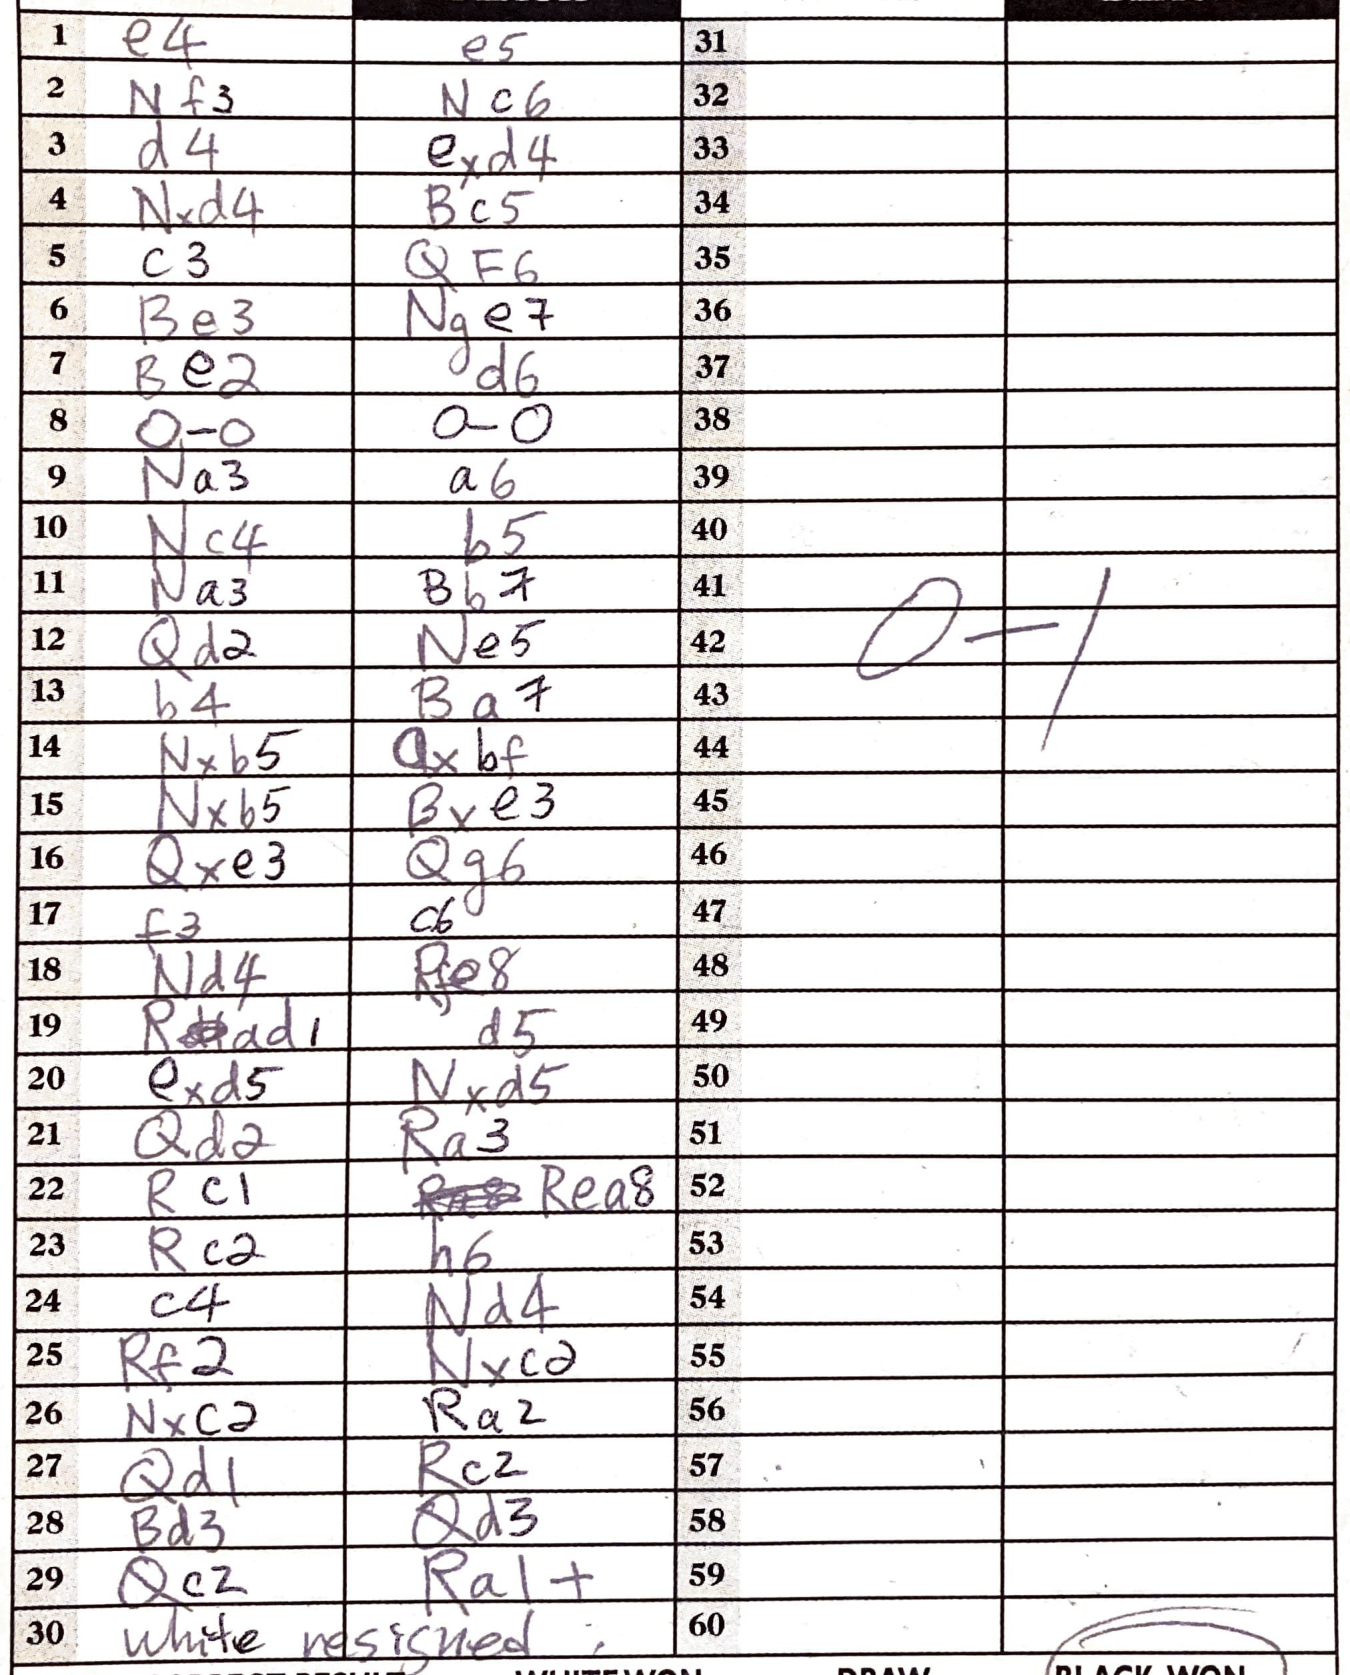 1 e4 e5 31
2 Nf3 Nc6 32
3 d4 exd4 33
4 Nxd4 Bc5 34
5 c3 QF6 35
6 Be3 Nge7 36
7 Be2 d6 37
8 O-O O-O 38
9 Na3 a6 39
10 Nc4 b5 40
11 Na3 Bb7 41
12 Qd2 Ne5 42
13 b4 Ba7 43
0-1
14 Nxb5 axbf 44
15 Nxb5 Bxe3 45
16 Qxe3 Qg6 46
17 f3 c6 47
18 Nd4 Rfe8 48
19 Rad1 d5 49
20 exd5 Nxd5 50
21 Qd2 Ra3 51
22 Rc1 Rea8 52
23 Rc2 h6 53
24 c4 Nd4 54
25 Rf2 Nxc2 55
26 Nxc2 Ra2 56
27 Qd1 Rc2 57
28 Bd3 Qd3 58
29 Qc2 Ra1+ 59
30 white resigned. 60
CORRECT RESULT WHITE WON DRAW BLACK WON